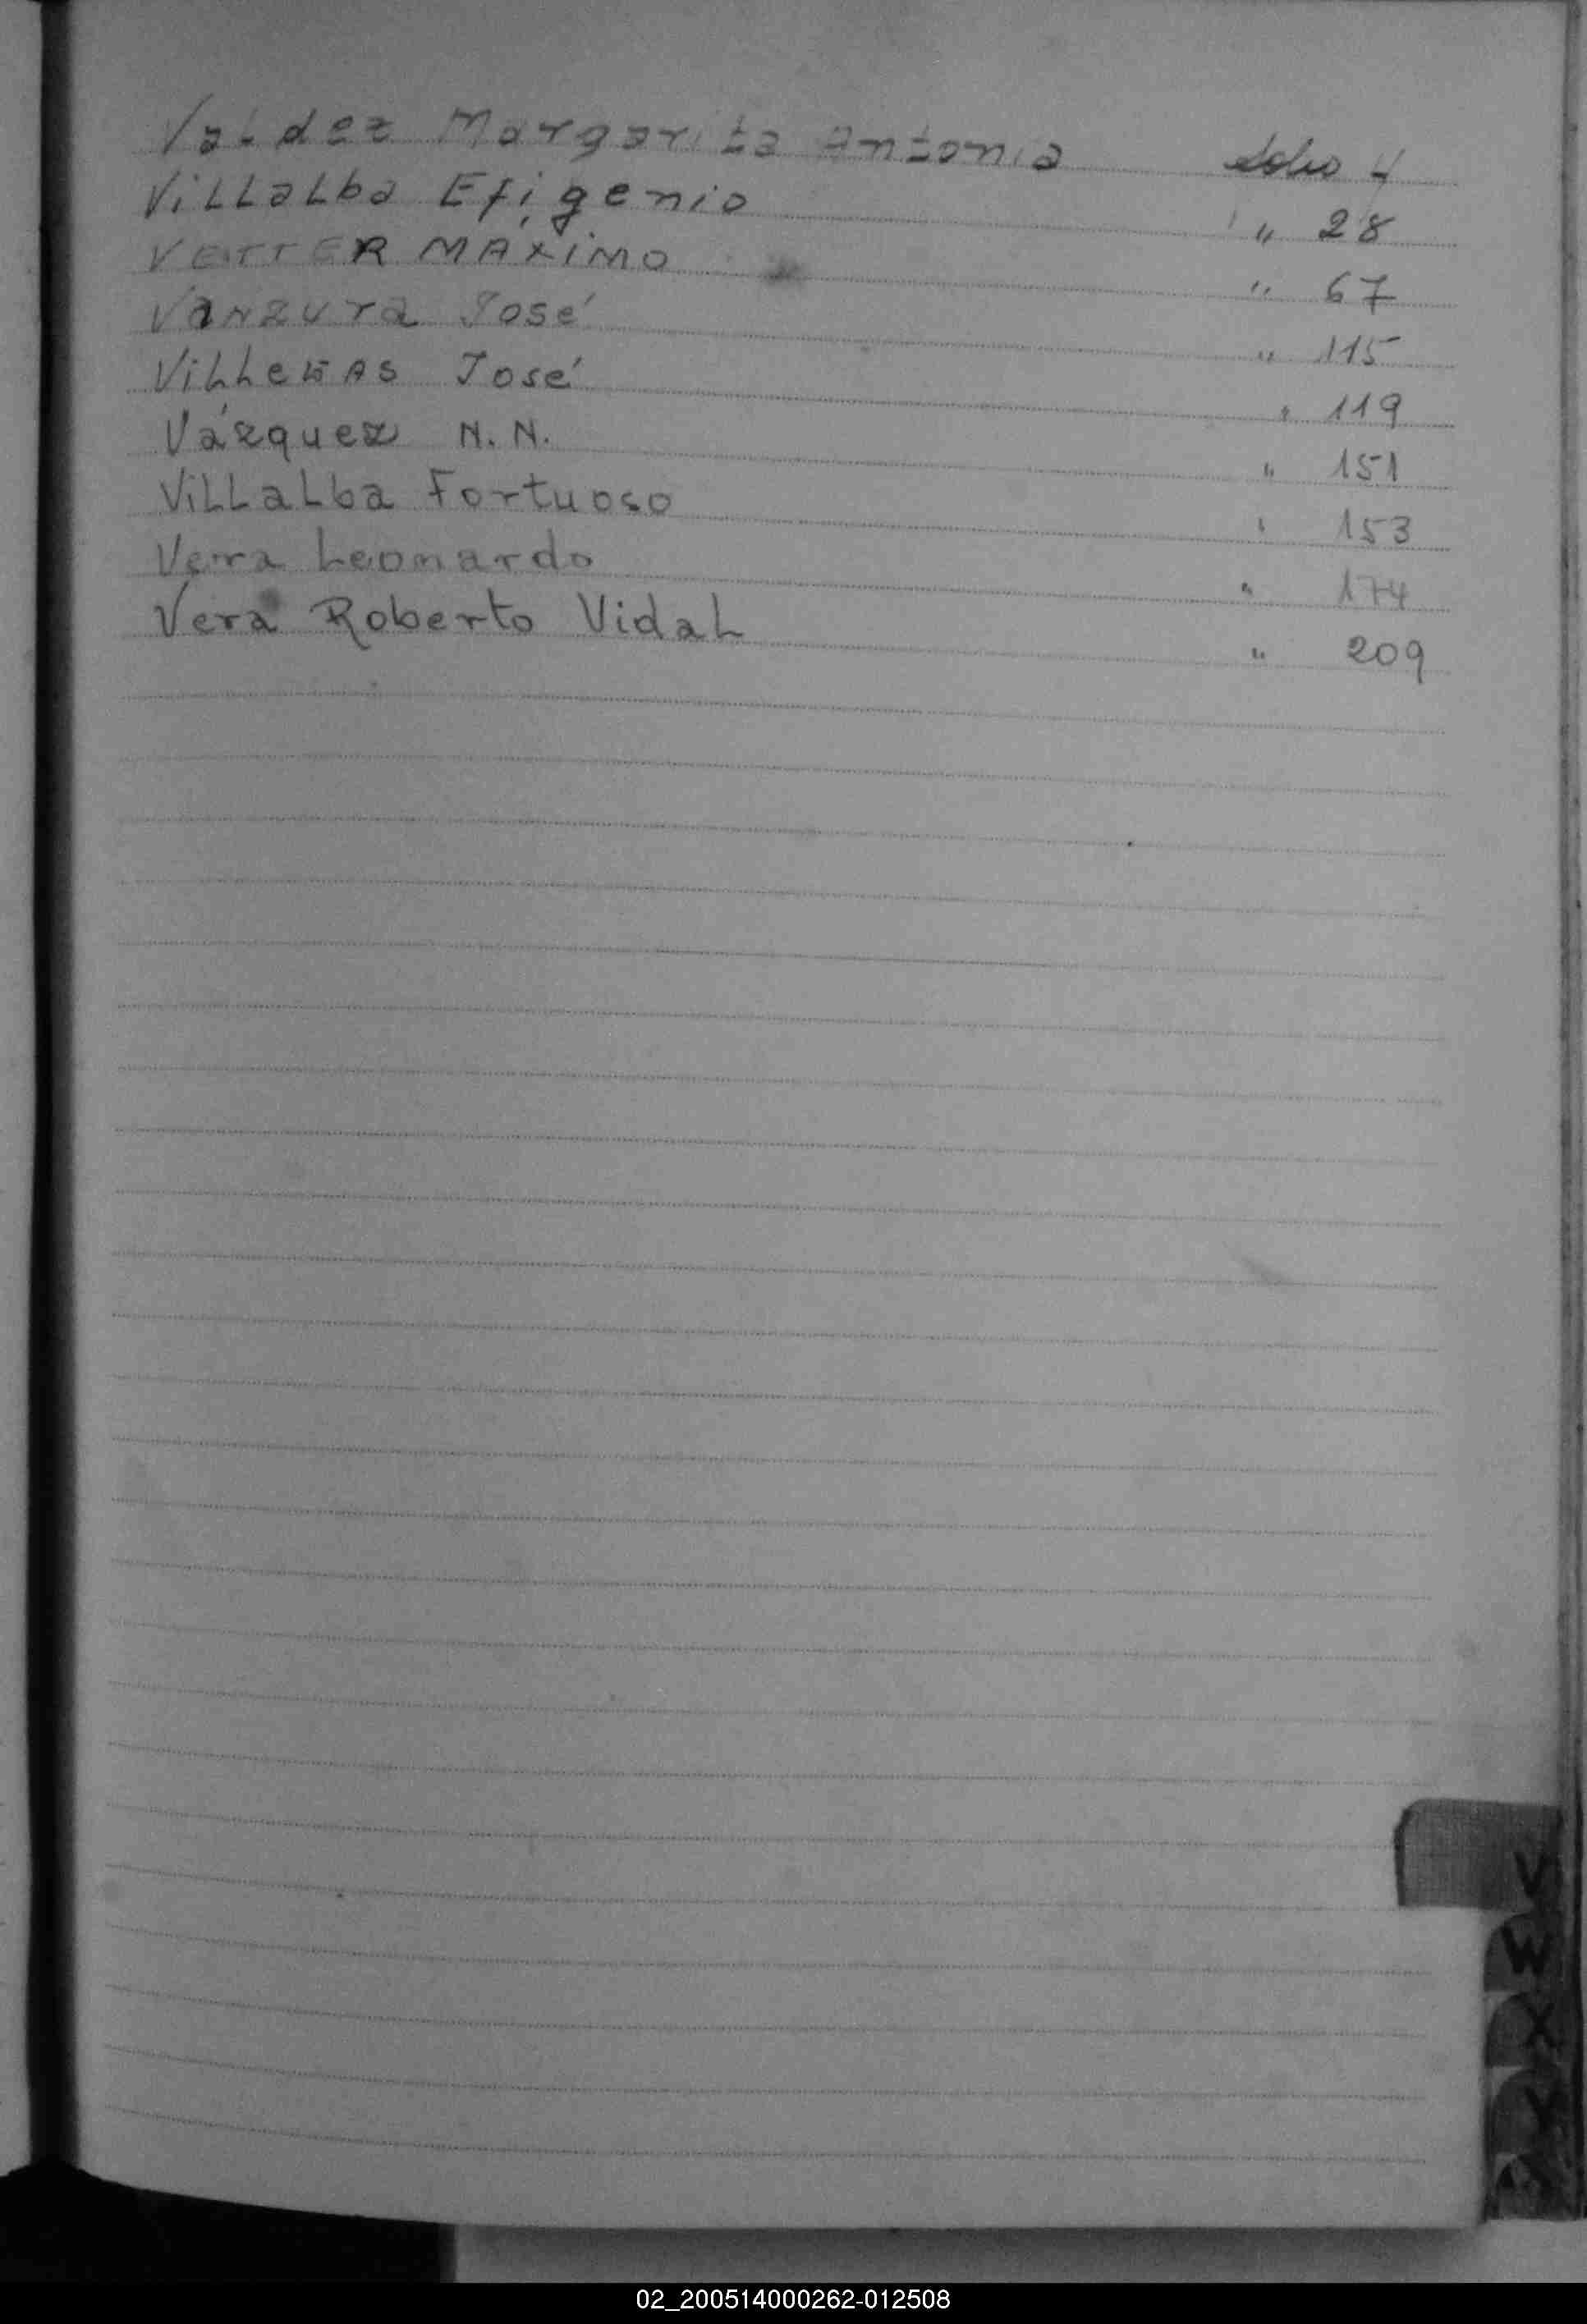 Valdez Margarita Antonia folio 4
Villalba Efigenio " 28
VETTER MAXIMO " 67
Vanzura José " 115
Villegas José " 119
Vázquez N. N. " 151
Villalba Fortuoso " 153
Vera Leonardo " 174
Vera Roberto Vidal " 209
V
W
X
Y
Z
02_200514000262-012508